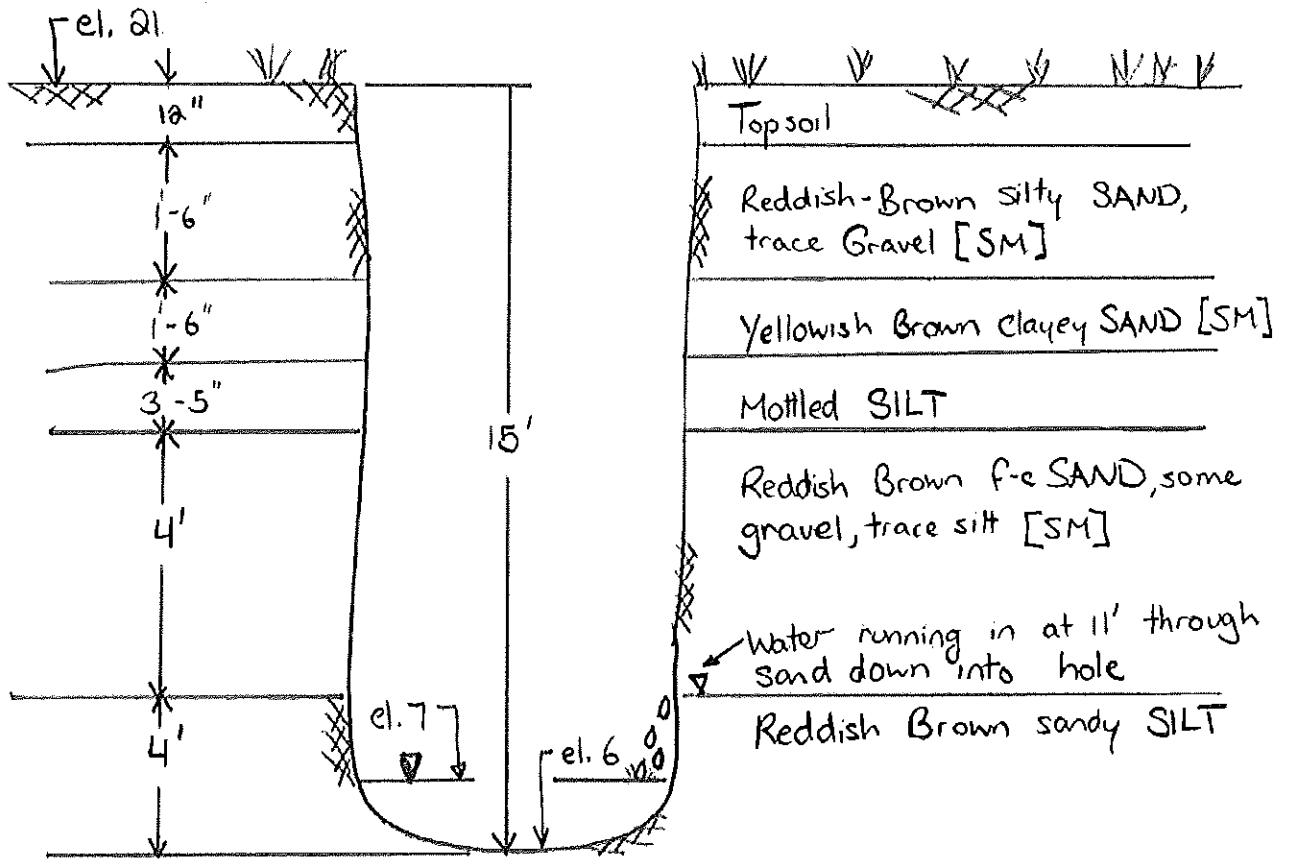 el. 21
12"
1-6"
1-6"
3-5"
4'
4'
15'
el. 7
el. 6
Topsoil
Reddish-Brown silty SAND,
trace Gravel [SM]
Yellowish Brown Clayey SAND [SM]
Mottled SILT
Reddish Brown f-c SAND, some
gravel, trace silt [SM]
Water running in at 11' through
sand down into hole
Reddish Brown sandy SILT